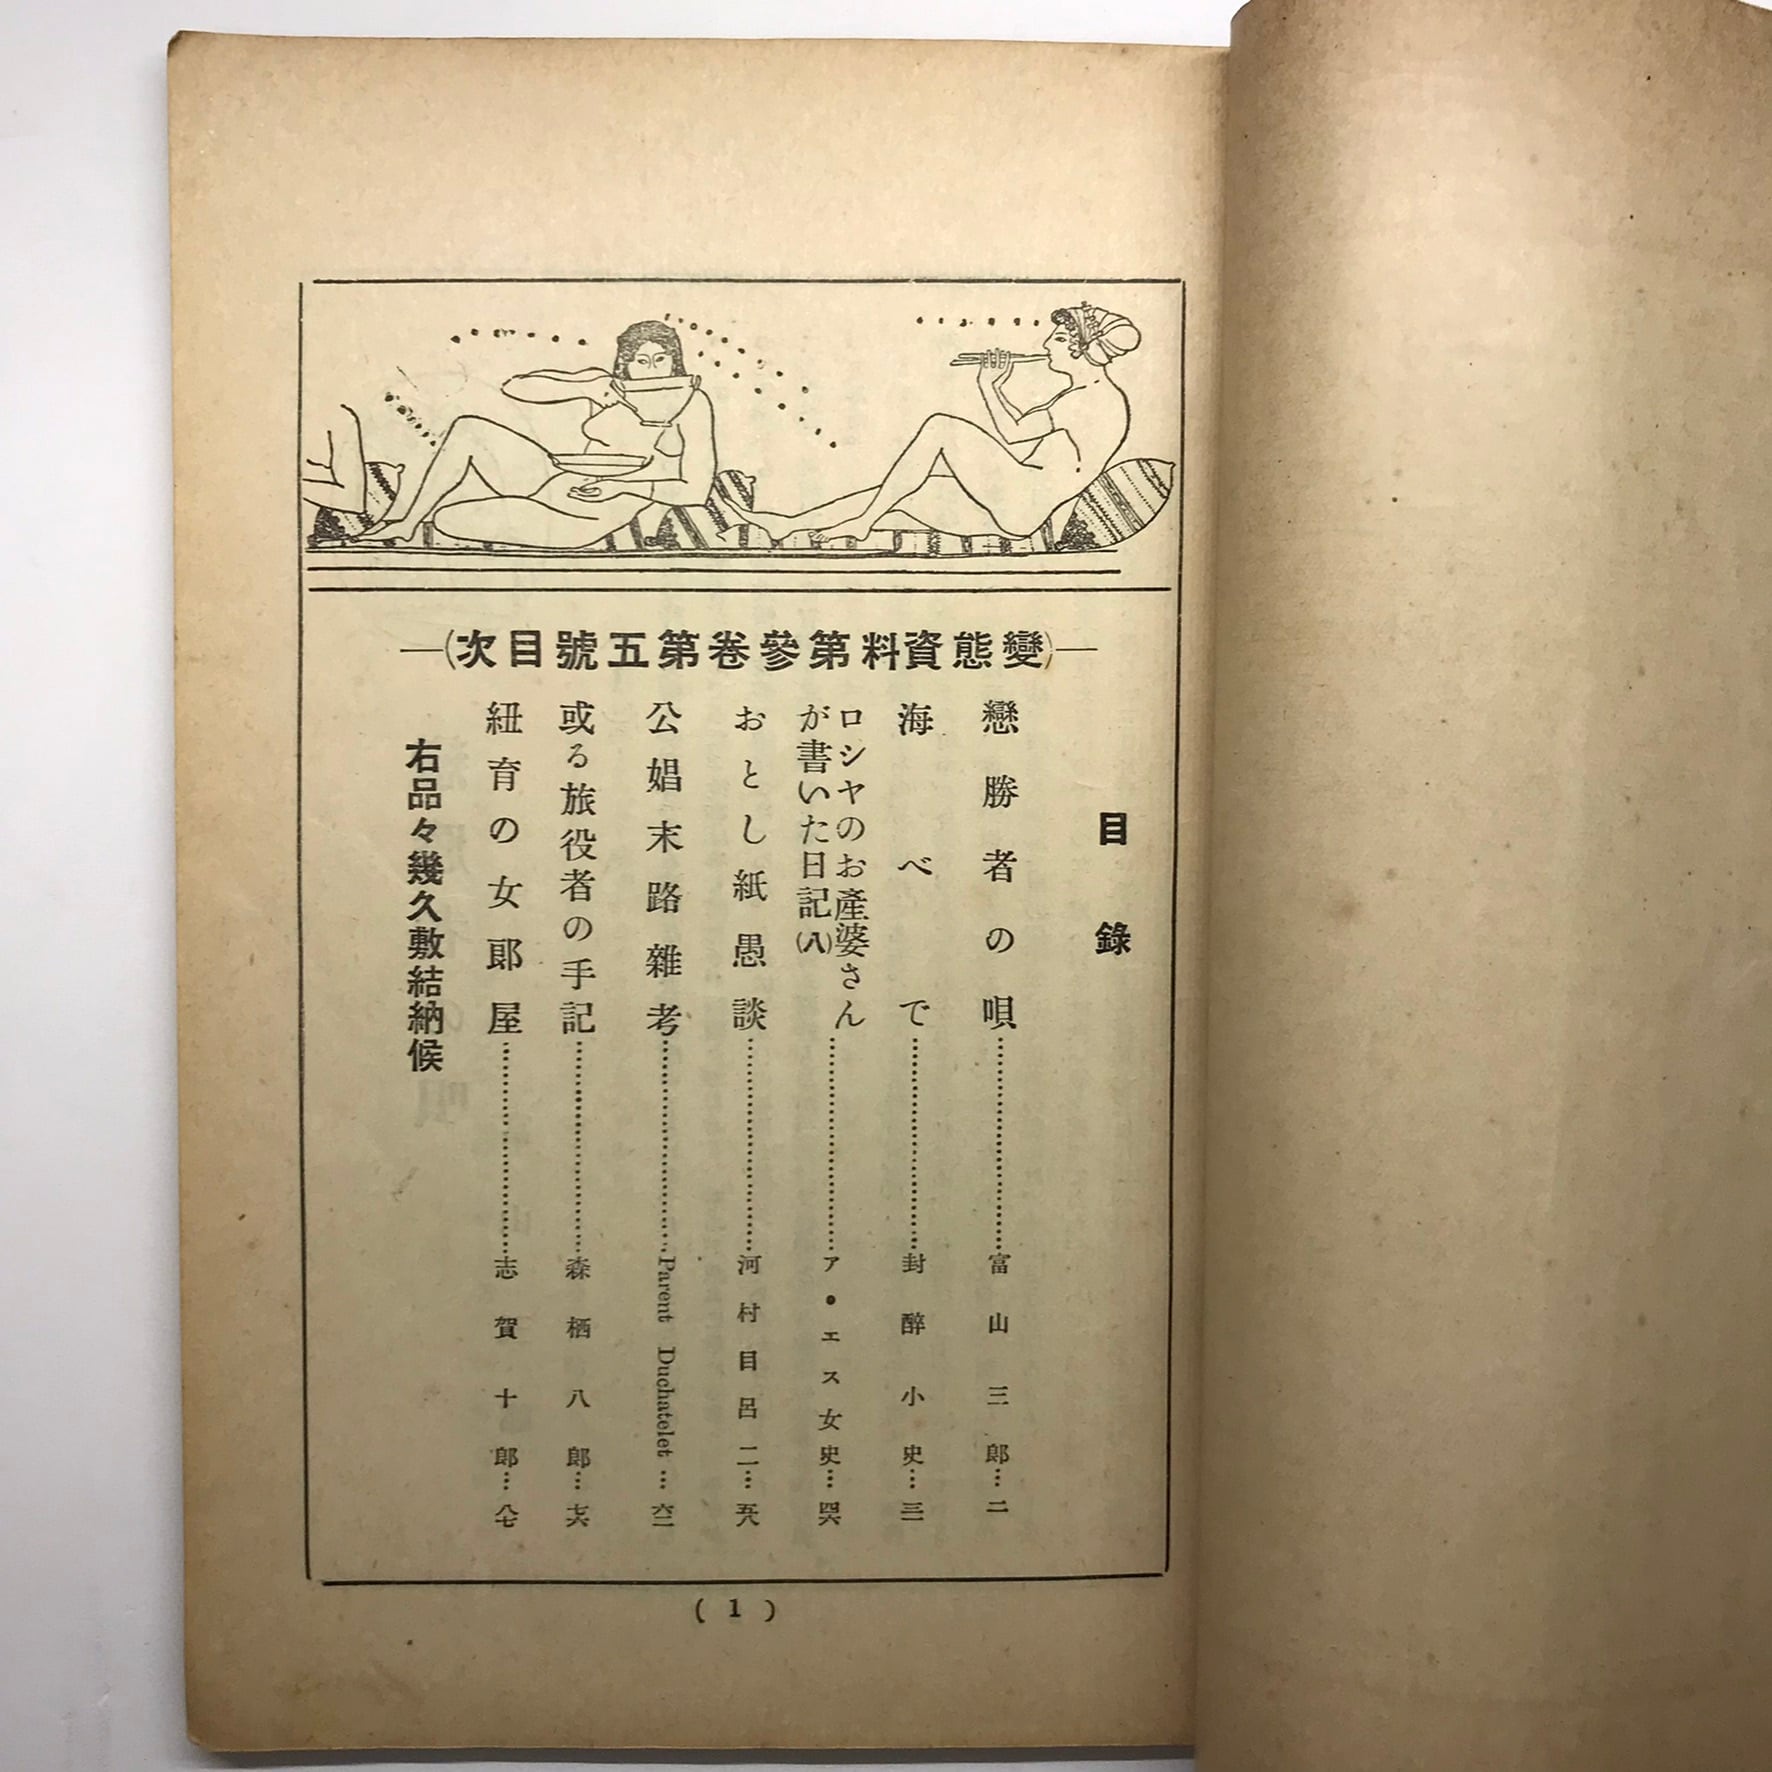 (變態資料第參卷第五號目次)
目錄
戀勝者の唄…富山三郎…二
海べで…封醉小史…三一
ロシヤのお產婆さん
が書いた日記(八)…ア・エス女史…四六
おとし紙愚談…河村目呂二…五八
公娼末路雜考…Parent Duchatelet…六二
或る旅役者の手記…森栖八郎…七六
紐育の女郞屋…志賀十郞…八七
右品々幾久敷結納候
( 1 )